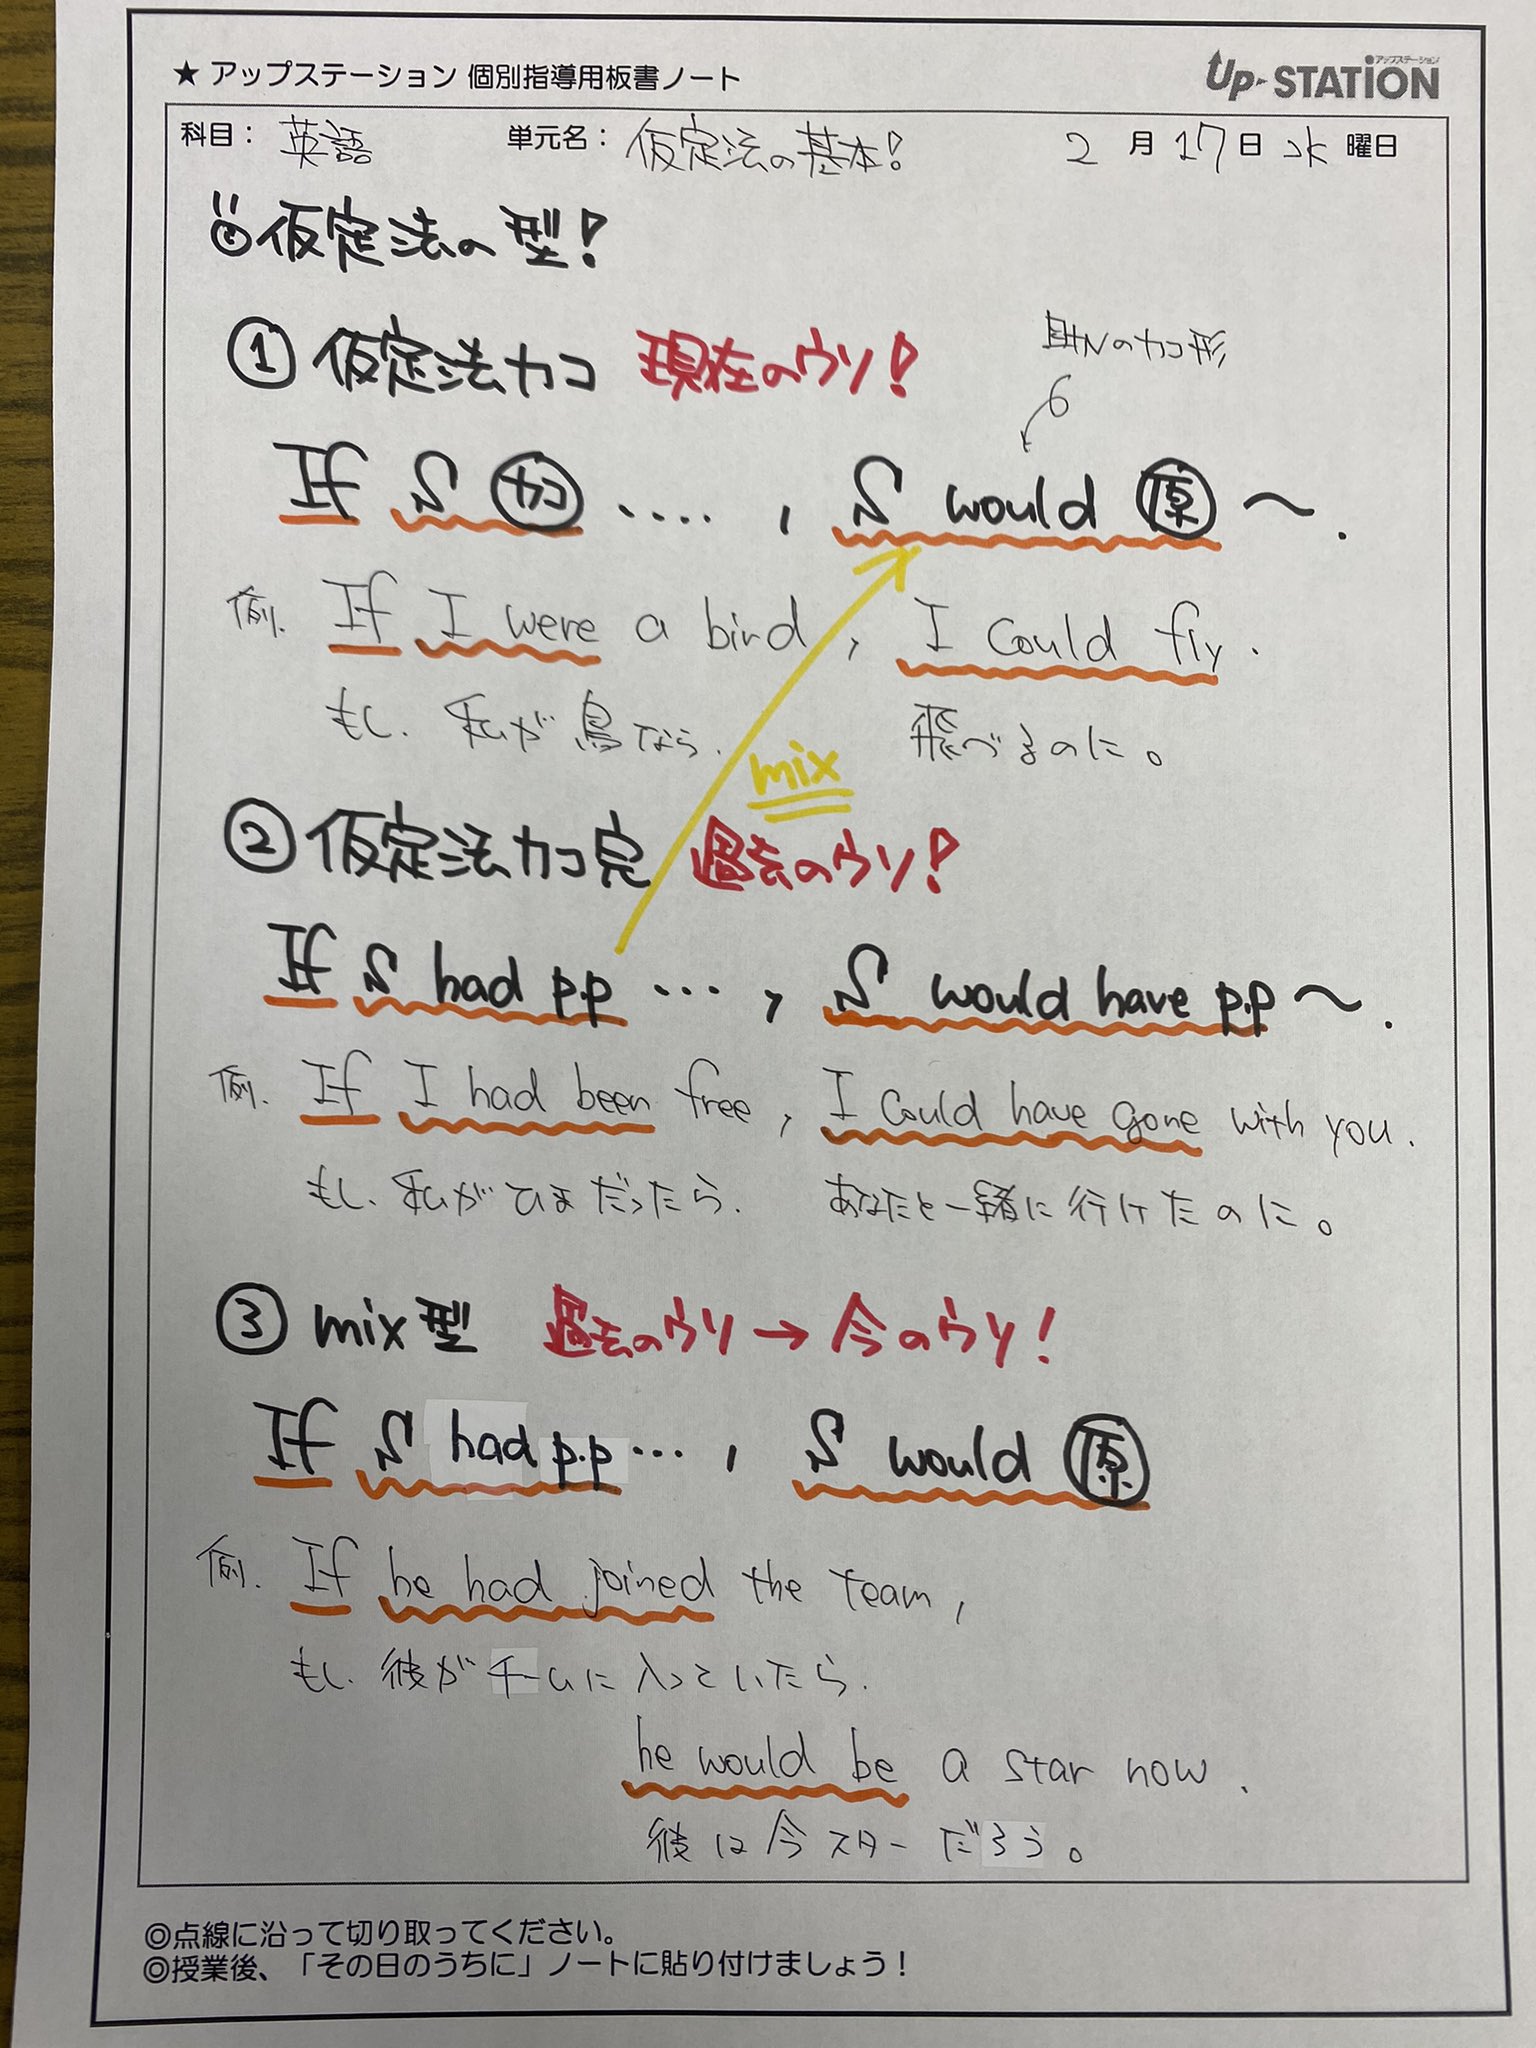 ★ アップステーション 個別指導用板書ノート
アップステーション
UP-STATION
科目： 英語 単元名： 仮定法の基本! 2 月 17 日 水 曜日
仮定法の型!
① 仮定法カコ 現在のウソ!
助Vのカコ形
If S カコ ‥‥, S would 原 〜.
例. If I were a bird, I could fly.
もし、私が鳥なら、 飛べるのに。
mix
② 仮定法カコ完 過去のウソ!
If S had p.p …, S would have p.p 〜.
例. If I had been free, I could have gone with you.
もし、私がひまだったら、 あなたと一緒に行けたのに。
③ mix型 過去のウソ→今のウソ!
If S had p.p …, S would 原
例. If he had joined the team,
もし、彼がチームに入っていたら、
he would be a star now.
彼は今スターだろう。
◎点線に沿って切り取ってください。
◎授業後、「その日のうちに」ノートに貼り付けましょう！